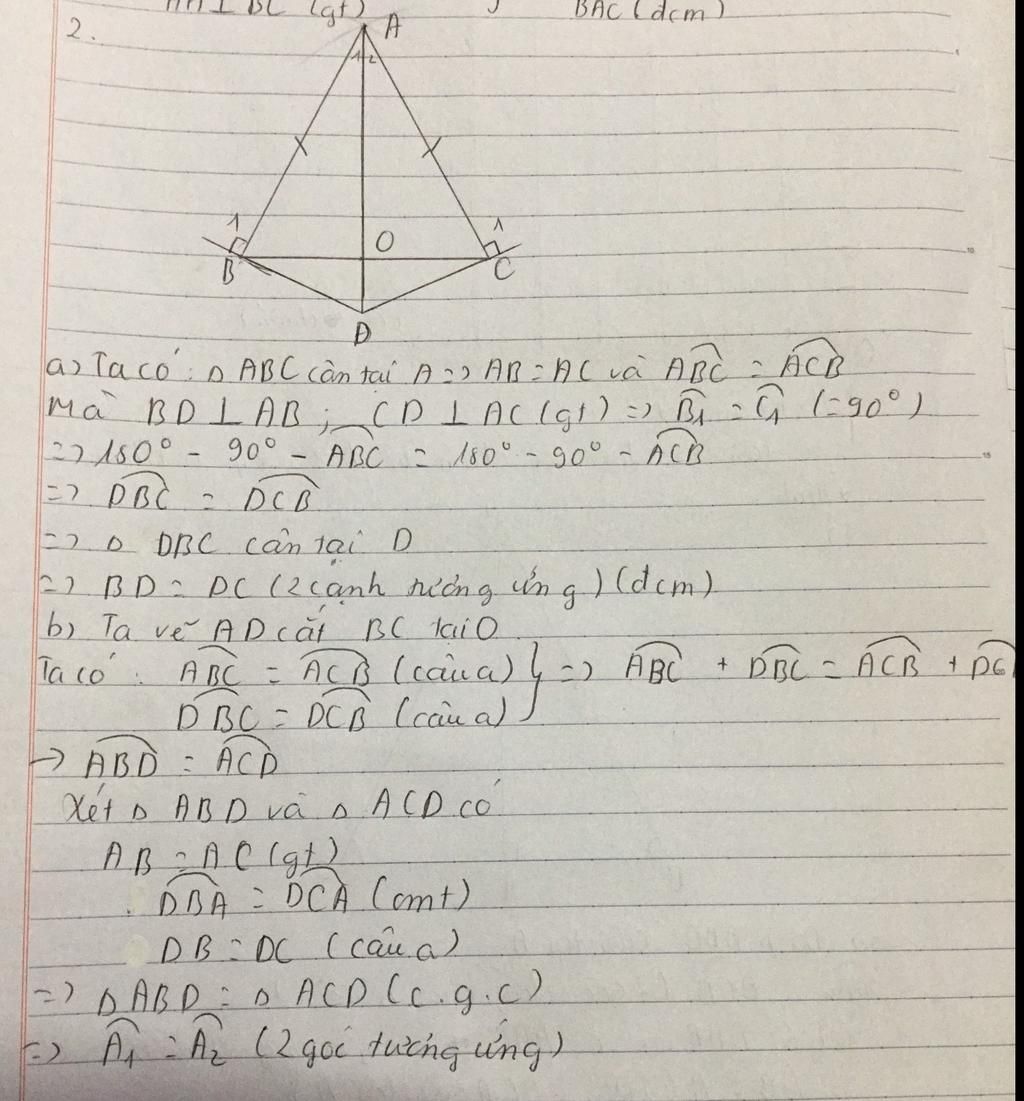 AH ⊥ BC (gt) BAC (dcm)
2.
A
1 2
1 1
O
B C
D
a) Ta có : Δ ABC cân tại A => AB = AC và ABC = ACB
Mà BD ⊥ AB ; CD ⊥ AC (gt) => B1 = C1 (=90°)
=> 180° - 90° - ABC = 180° - 90° - ACB
=> DBC = DCB
=> Δ DBC cân tại D
=> BD = DC (2 cạnh tương ứng) (đcm)
b) Ta vẽ AD cắt BC tại O
Ta có : ABC = ACB (câu a) } => ABC + DBC = ACB + DC
DBC = DCB (câu a)
-> ABD = ACD
Xét Δ ABD và Δ ACD có
AB = AC (gt)
DBA = DCA (cmt)
DB = DC (câu a)
=> Δ ABD = Δ ACD (c.g.c)
=> A1 = A2 (2 góc tương ứng)